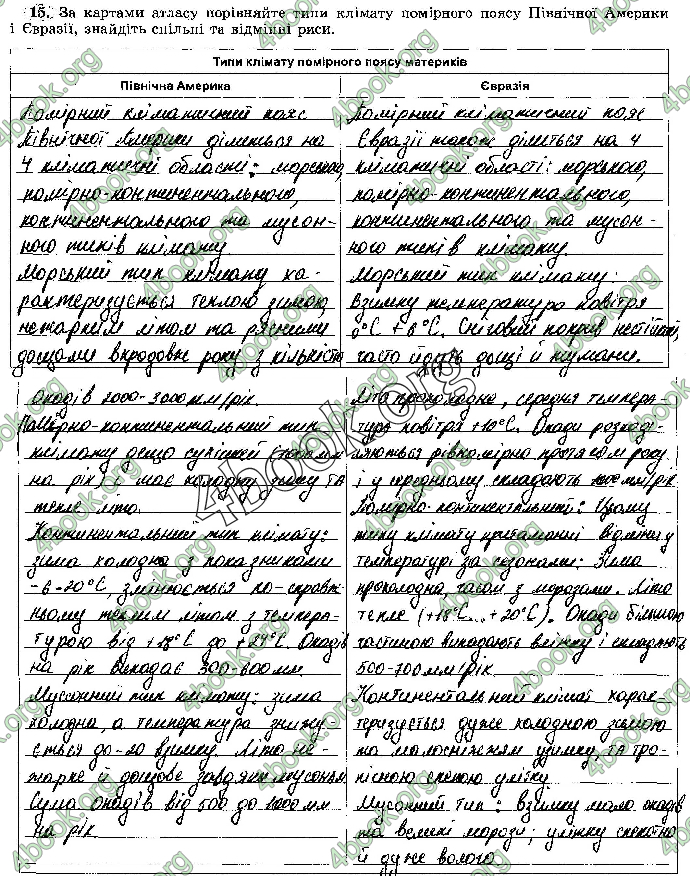 15. За картами атласу порівняйте типи клімату помірного поясу Північної Америки
і Євразії, знайдіть спільні та відмінні риси.
Типи клімату помірного поясу материків
Північна Америка
Помірний кліматичний пояс
Північної Америки ділиться на
4 кліматичні області: морського,
помірно-континентального,
континентального та мусон-
ного типів клімату.
Морський тип клімату ха-
рактеризується теплою зимою,
нежарким літом та рясними
дощами впродовж року з кількістю
Опадів 2000-3000 мм/рік.
Помірно-континентальний тип
клімату дещо сухіший
на рік і має холодну зиму та
тепле літо.
Континентальний тип клімату:
зима холодна з показниками
-6-20°С, змінюється по-справж-
ньому теплим літом з темпера-
турою від +18°С до +24°С. Опадів
на рік випадає 300-600 мм.
Мусонний тип клімату: зима
холодна, а температура знижу-
ється до -20 взимку. Літо не-
жарке й дощове завдяки мусонам
Сума опадів від 500 до 1000 мм
на рік.
Євразія
Помірний кліматичний пояс
Євразії також ділиться на 4
кліматичні області: морського,
помірно-континентального,
континентального та мусон-
ного типів клімату.
Морський тип клімату:
Взимку температура повітря
0°С +6°С. Сніговий покрив нестійкий,
часто йдуть дощі й тумани.
Літо прохолодне, середня темпера-
тура повітря +10°С. Опади розподі-
ляються рівномірно протягом року
і у середньому складають мм/рік
Помірно-континентальний: Цьому
типу клімату притаманні відміни у
температурі за сезонами: Зима
прохолодна, часом з морозами. Літо
тепле (+18°С...+20°С). Опади більшою
частиною випадають влітку і складають
500-700 мм/рік
Континентальний клімат харак-
теризується дуже холодною зимою
та малосніжжям узимку, та тро-
пічною спекою улітку
Мусонний тип: взимку мало опадів
та великі морози; улітку спекотно
й дуже волого.
4book.org